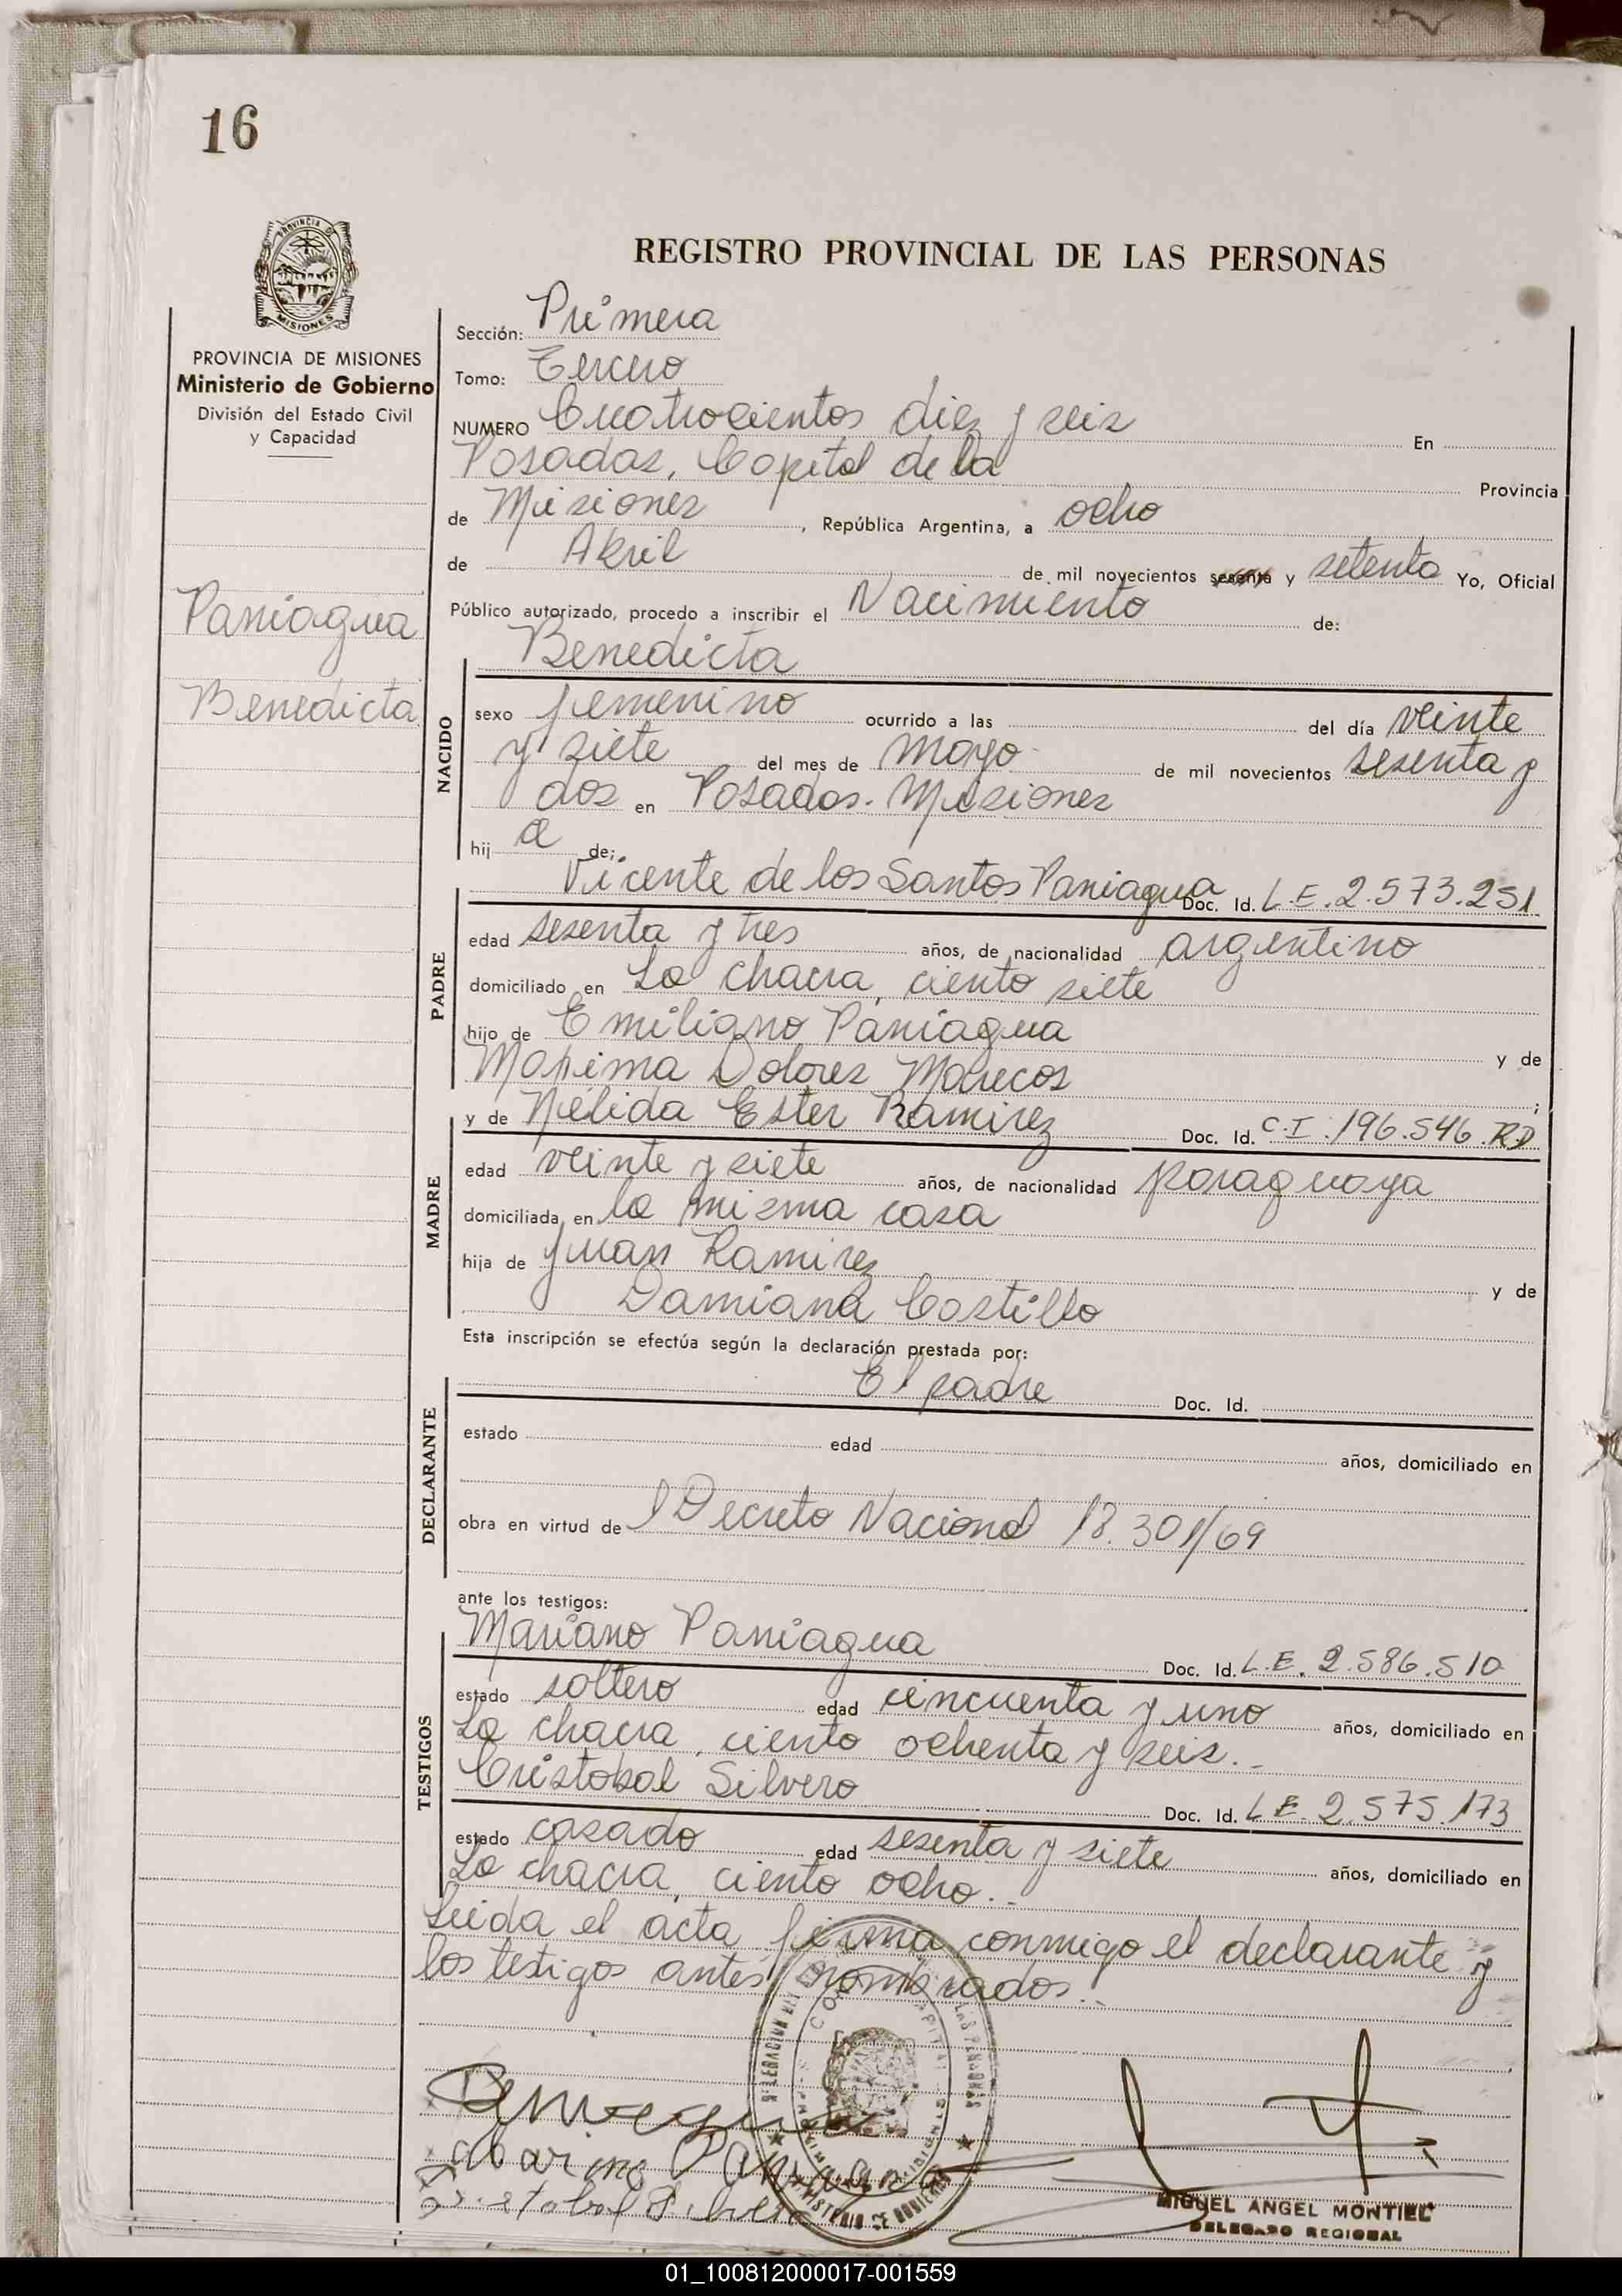 16
PROVINCIA DE
MISIONES
PROVINCIA DE MISIONES
Ministerio de Gobierno
División del Estado Civil
y Capacidad
Paniagua
Benedicta
REGISTRO PROVINCIAL DE LAS PERSONAS
Sección: Primera
Tomo: Tercero
NUMERO Cuatrocientos diez y seis En
Posadas, Capital de la Provincia
de Misiones, República Argentina, a ocho
de Abril de mil novecientos sesenta y setenta Yo, Oficial
Público autorizado, procedo a inscribir el Nacimiento de:
Benedicta
NACIDO
sexo femenino ocurrido a las del día veinte
y siete del mes de mayo de mil novecientos sesenta y
dos en Posadas. Misiones
hij a de:
Vicente de los Santos Paniagua Doc. Id. L.E. 2.573.251
PADRE
edad sesenta y tres años, de nacionalidad argentino
domiciliado en La chacra, ciento siete
hijo de Emiliano Paniagua y de
Maxima Dolores Marecos ;
y de Nélida Ester Ramirez Doc. Id. C.I. 196.546 R.P
MADRE
edad veinte y siete años, de nacionalidad paraguaya
domiciliada en la misma casa
hija de Juan Ramirez y de
Damiana Costillo
Esta inscripción se efectúa según la declaración prestada por:
El padre Doc. Id.
DECLARANTE
estado edad años, domiciliado en
obra en virtud de l Decreto Nacional 18.301/69
ante los testigos:
Mariano Paniagua Doc. Id. L.E. 2.586.510
TESTIGOS
estado soltero edad cincuenta y uno años, domiciliado en
La chacra, ciento ochenta y seis.-
Cristobal Silvero Doc. Id. L.E. 2.575.173
estado casado edad sesenta y siete años, domiciliado en
La chacra, ciento ocho.-
Leida el acta firma conmigo el declarante y
los testigos antes nombrados.-
MINISTERIO DE GOBIERNO
MIGUEL ANGEL MONTIEL
DELEGADO REGIONAL
01_100812000017-001559